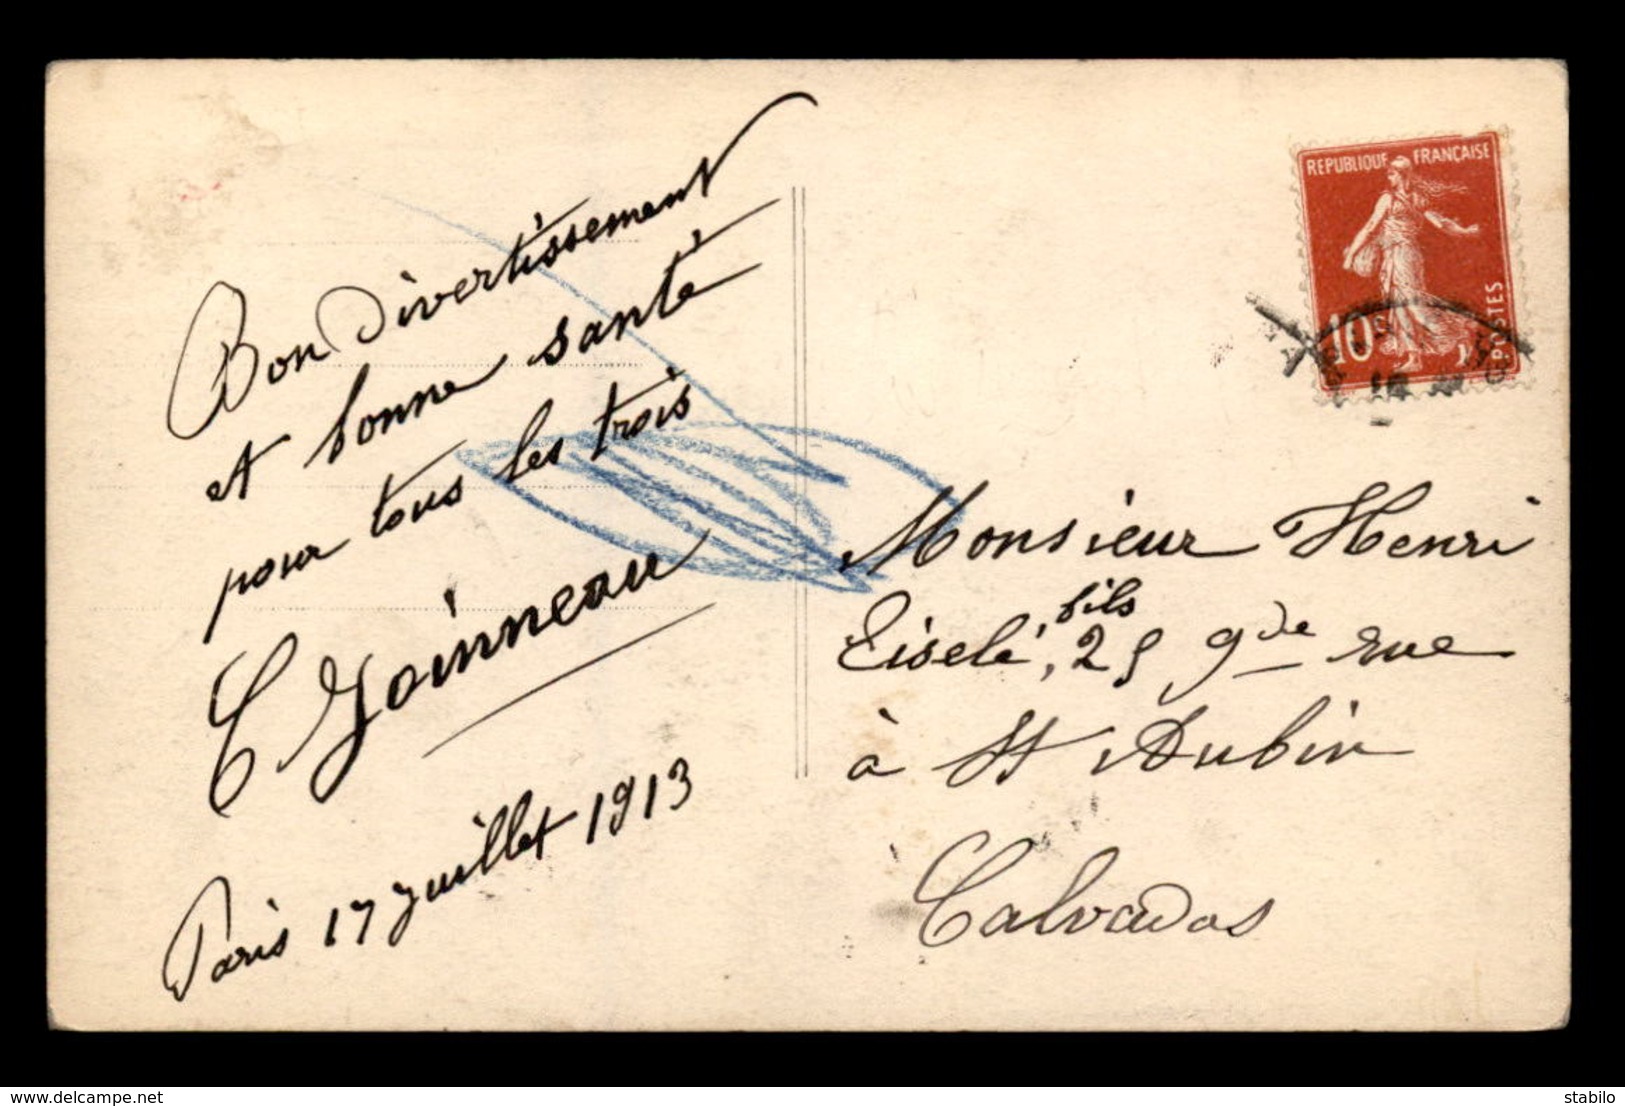 Bon divertissement
et bonne santé
pour tous les trois
Paris 17 juillet 1913
REPUBLIQUE FRANÇAISE
10
POSTES
Monsieur Henri
Eiselé, fils 25 gde rue
à St Aubin
Calvados
www.delcampe.net
stabilo